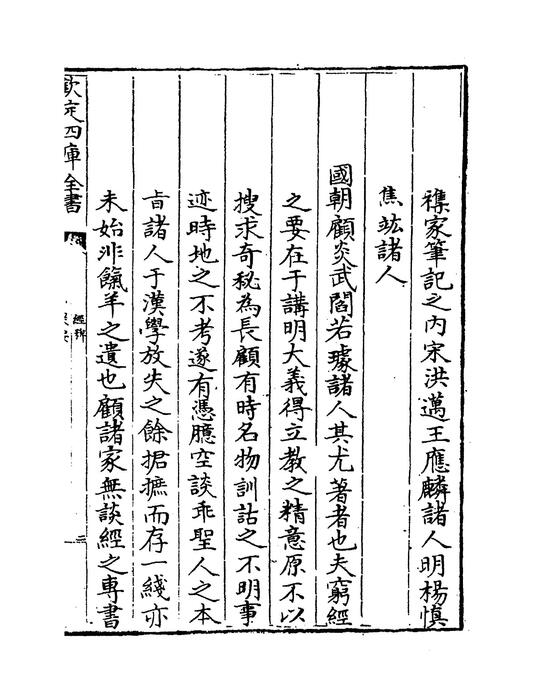 襍家筆記之内宋洪邁王應麟諸人明楊慎
焦竑諸人
國朝顧炎武閻若璩諸人其尤著者也夫窮經
之要在于講明大義得立教之精意原不以
搜求奇秘為長顧有時名物訓詁之不明事
迹時地之不考遂有憑臆空談乖聖人之本
旨諸人于漢學放失之餘捃摭而存一綫亦
未始非餼羊之遺也顧諸家無談經之專書
欽定四庫全書
經稗
三